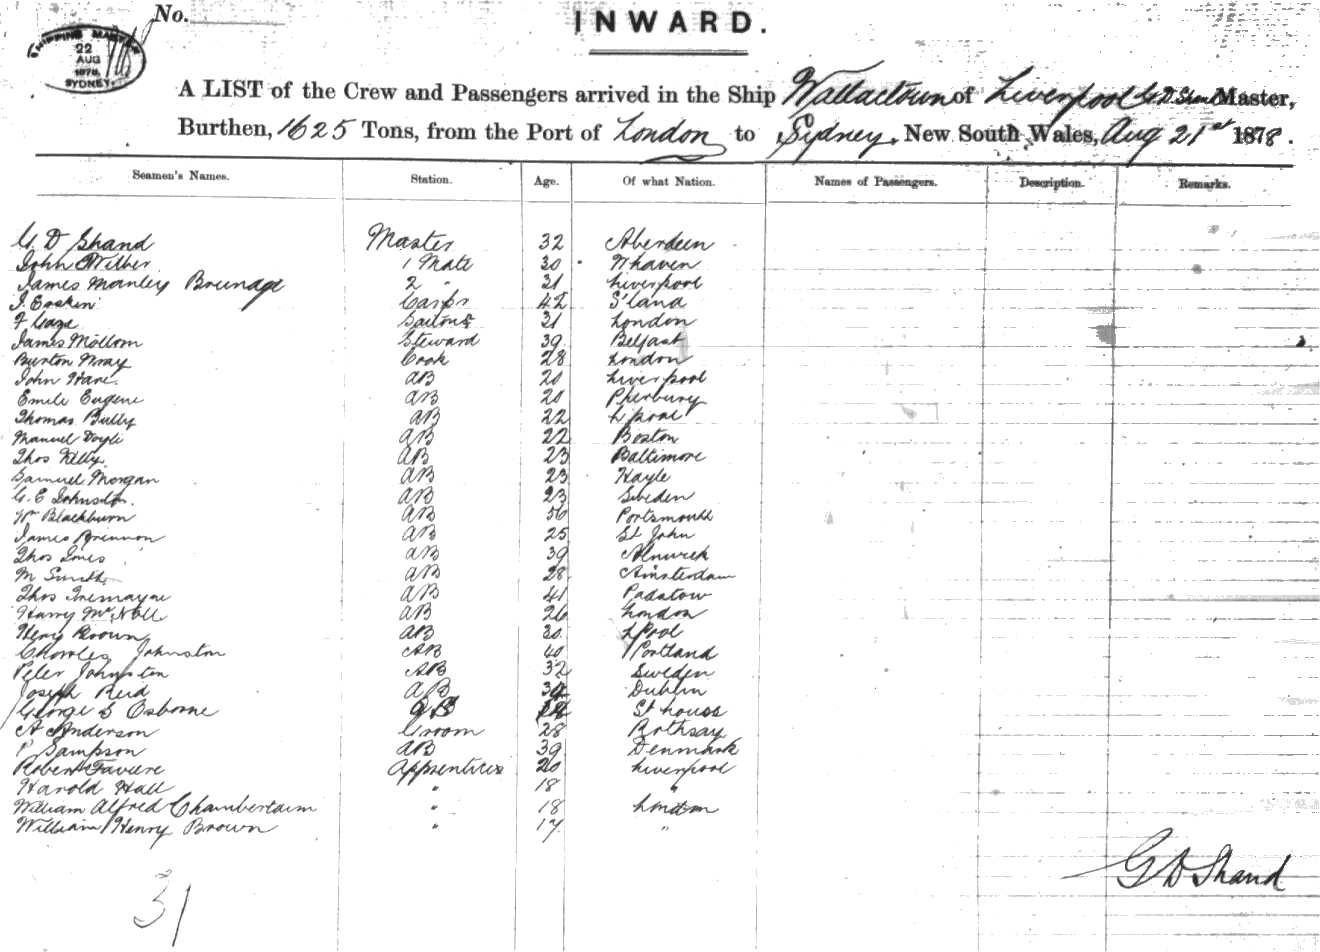 No.
INWARD.
SHIPPING MASTER
22
AUG
1878
SYDNEY.
A LIST of the Crew and Passengers arrived in the Ship Wallacetown of Liverpool G D Shand Master,
Burthen, 1625 Tons, from the Port of London to Sydney, New South Wales, Aug 21st 1878.
Seamen's Names. Station. Age. Of what Nation. Names of Passengers. Description. Remarks.
G. D Shand Master 32 Aberdeen
John Wilber 1 Mate 30 Whaven
James Manley Brundage 2 " 31 Liverpool
J. Erskin Carpr 42 S'land
F 31 London
James Mollom Steward 39 Belfast
Burton Wray Cook 28 London
John Hare. AB 20 Liverpool
Emile Eugene AB 20
Thomas Bully AB 22 Lpool
Manuel Doyle AB 22 Boston
Thos Kelly. AB 23 Baltimore
Samuel Morgan AB 23 Hayle
G. E Johnston. AB 23 Sweden
Wm Blackburn AB 50 Portsmouth
James Brennon AB 25 St John
Thos Jones AB 39 Alnwick
M Smith AB 28 Amsterdam
Thos Tremayne AB 41 Padstow
Harry McNeil AB 26 London
Heny Brown AB 30. LPool
Charles Johnston AB 40 Portland
Peter Johnston AB 32 Sweden
Joseph Reid AB Dublin
George S Osborne St
A Anderson Groom 28 Rothsay
P Sampson AB 39 Denmark
Robert Faviere Apprentices 20 Liverpool
Harold Hall " 18 "
William Alfred Chamberlaim " 18 London
William Henry Brown " 17 "
G D Shand
31